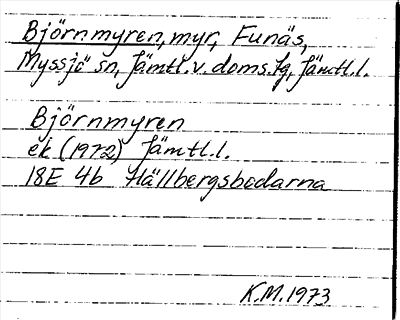 Björnmyren, myr, Funäs,
Myssjö sn, Jämtl. v. doms. fg, Jämtl. l.
Björnmyren
ek (1972) Jämtl. l.
18E 4b Hällbergsbodarna
K.M. 1973